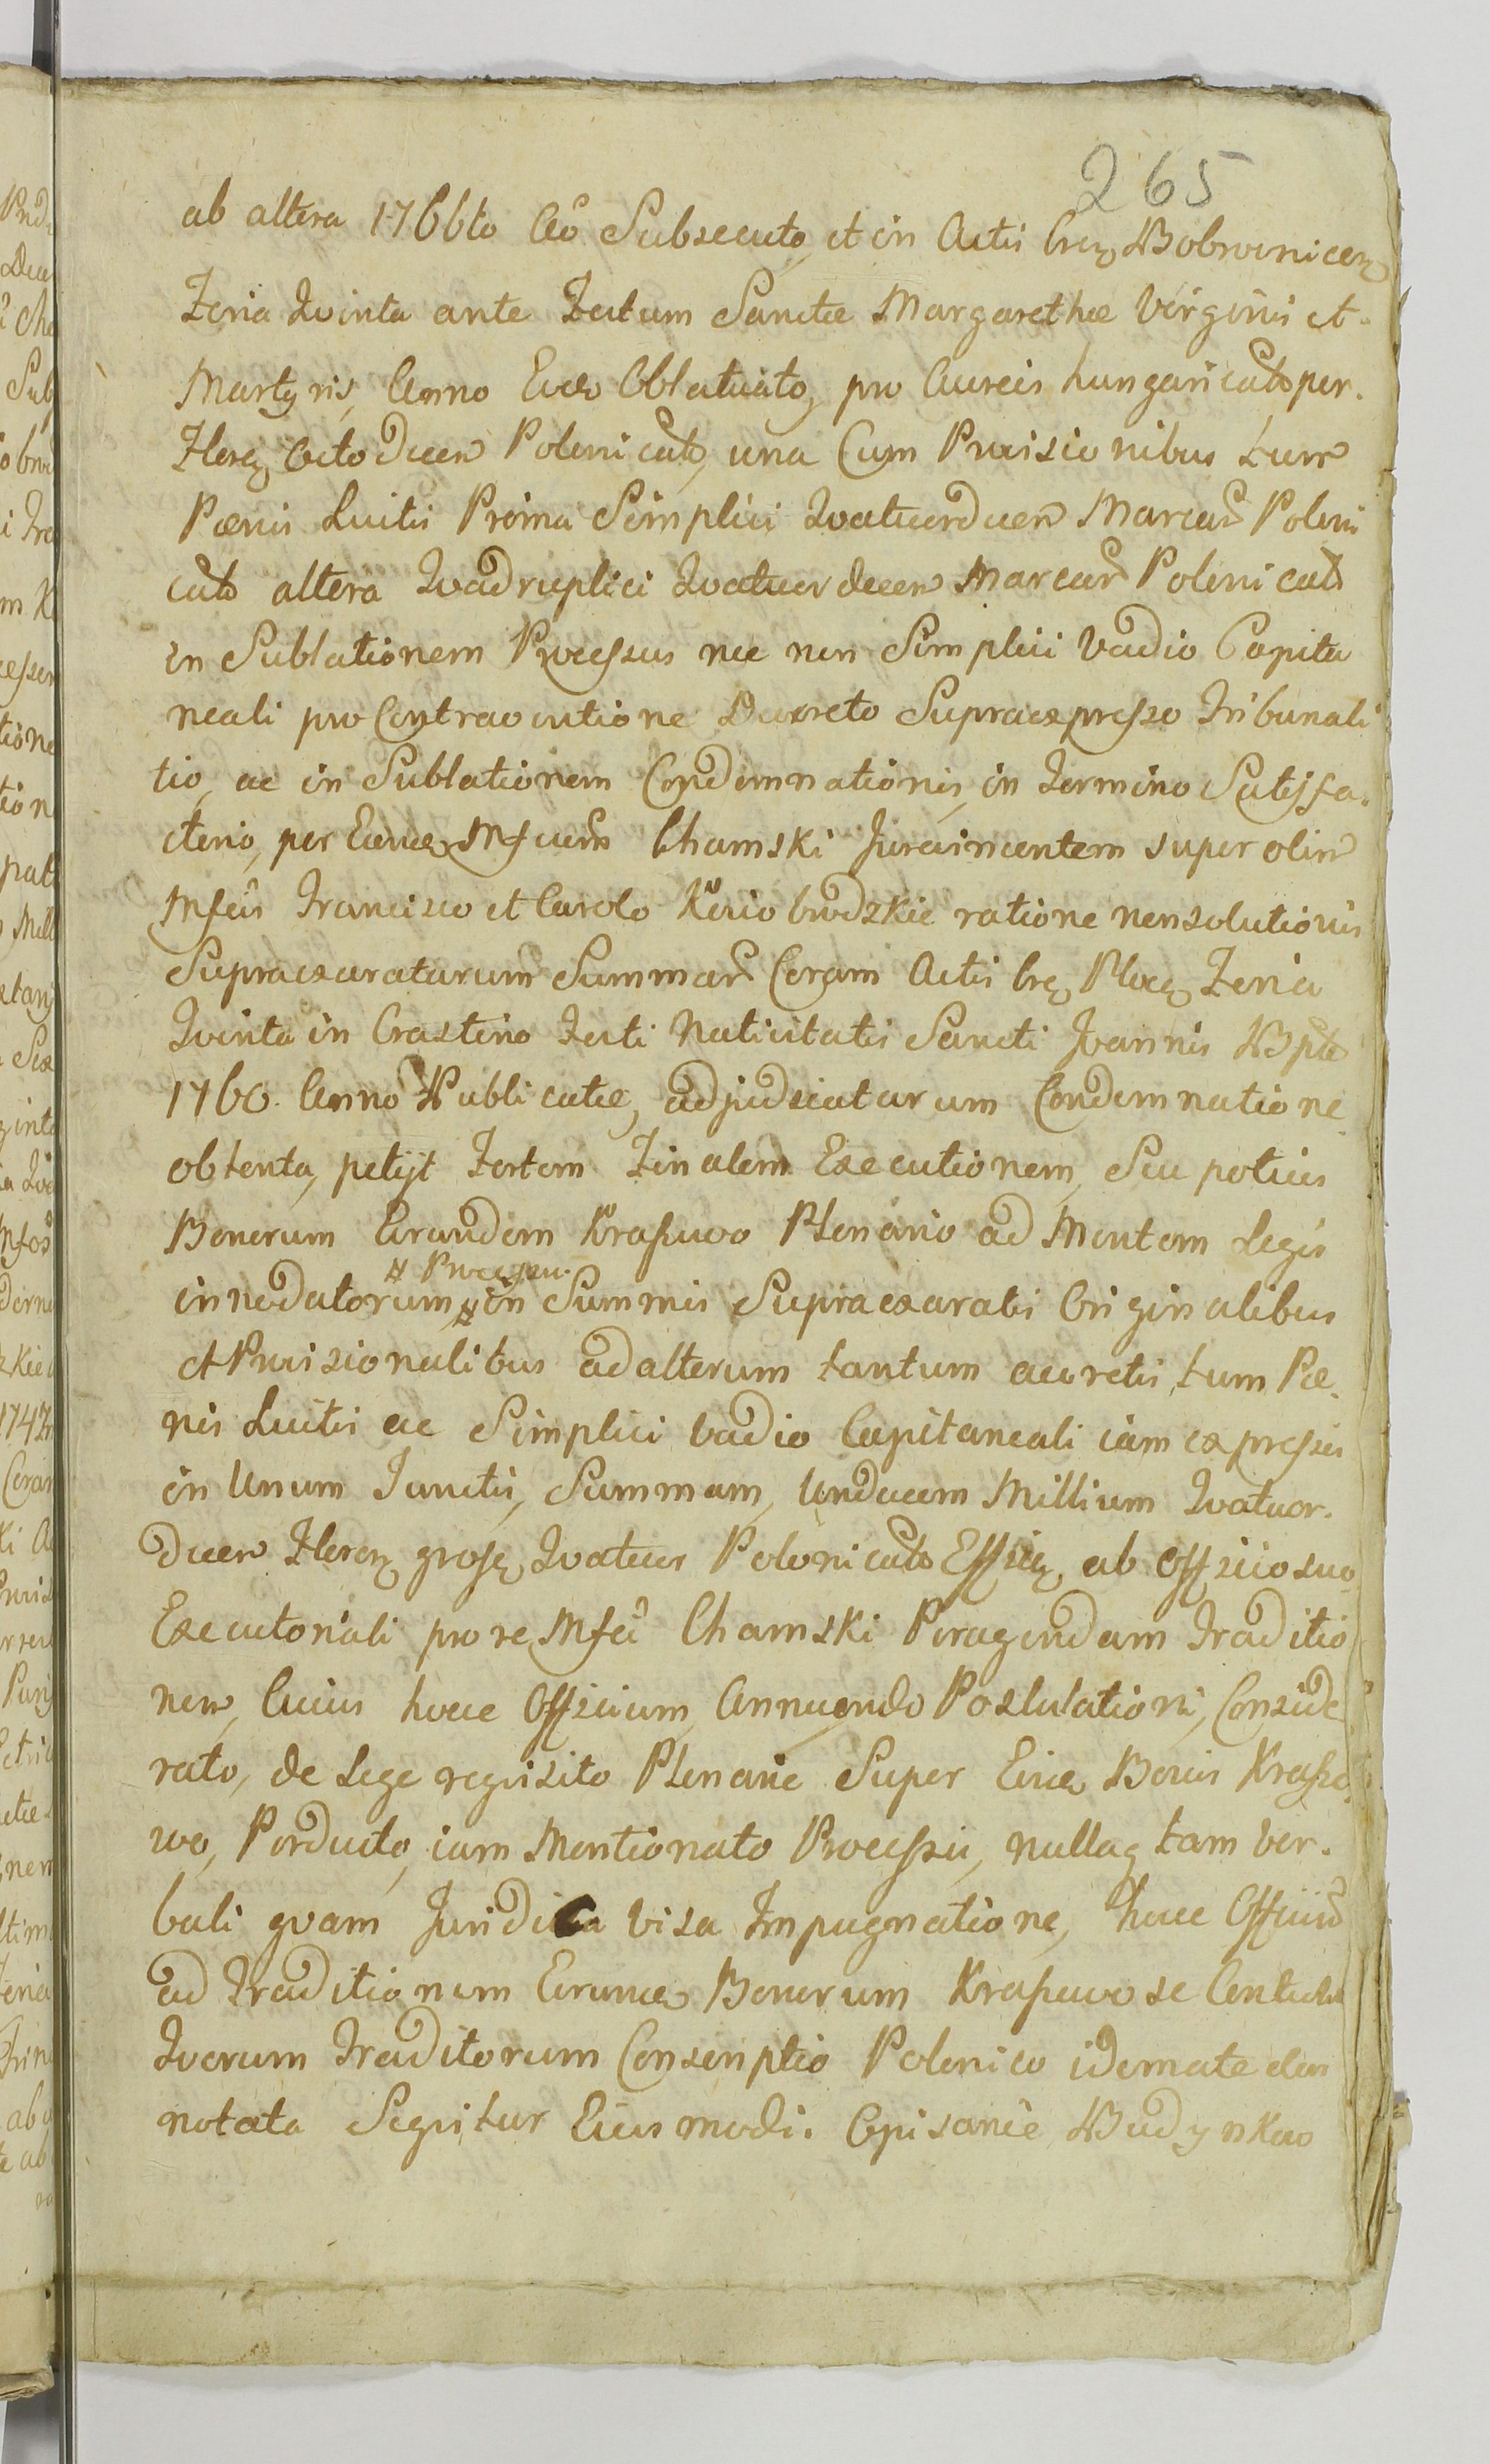 265
ab altera 1766to Aõ Subsecuto, et in Actis Crẽ Bobrovnicen
Feria Qvinta ante Festum Sanctæ Margarethæ Virginis et
Martyris, Anno Eodẽ Oblatuato, pro Aureis hungaricalib per
Floren Octodecem Polonicalib, una Cum Provisionibus tum
Pœnis Luitis Prima Simplici Qvatuordecem Marcar Poloni
calib altera Qvadruplici Qvatuordecem Marcar Polonicalib
in Sublationem Processus nec non Simplici Vadio Capita
neali pro Contraventione Decreto Supraexpresso Tribunali
tio, ac in Sublationem Condemnationis, in termino Satisfa
ctorio, per Eundẽ Mfcum Chamski super olim
Mfcis Francisco et Carolo ratione nonsolutionis
Supraexaratarum Summar Coram Actis Crẽ Ploc Feria
Qvinta in Crastino Festi Nativitatis Sancti Joannis Bptæ
1760. Anno Publicatæ, adjudicatarum Condemnatione
obtenta, petijt Fortem Finalem Executionem, Seu potius
Bonorum Eorundem Kraszewo Plenario ad Mentem Legis
# Processu
innodatorum # in Summis Supraexaratis Originalibus
et Provisionalibus ad alterum tantum accretis, tum Pœ
nis Luitis ac Simplici Vadio Capitaneali iam expressis
in Unum Junctis, Summam, Undecem Millium Qvatuor
decem Floren gross Qvatuor Polonicalib Effici, ab Officio suo
Executoriali pro re Mfci Chamski Peragendam Traditio
nem, Cuius hocce Officium, Annuendo Postulationi, Conside
rato, de Lege reqvisito Plenarie Super Eisdẽ Bonis Krasze
wo, Perducto, iam Mentionato Processu, nullaq tam ver
bali qvam Juridica visa Impugnatione, hocce Officium
ad Traditionem Eorundẽ Bonorum Kraszewo se Contulit
Qvorum Traditorum Conscriptio Polonico idiomate
notata Seqvitur Eiusmodi. Opisanie Budynkow